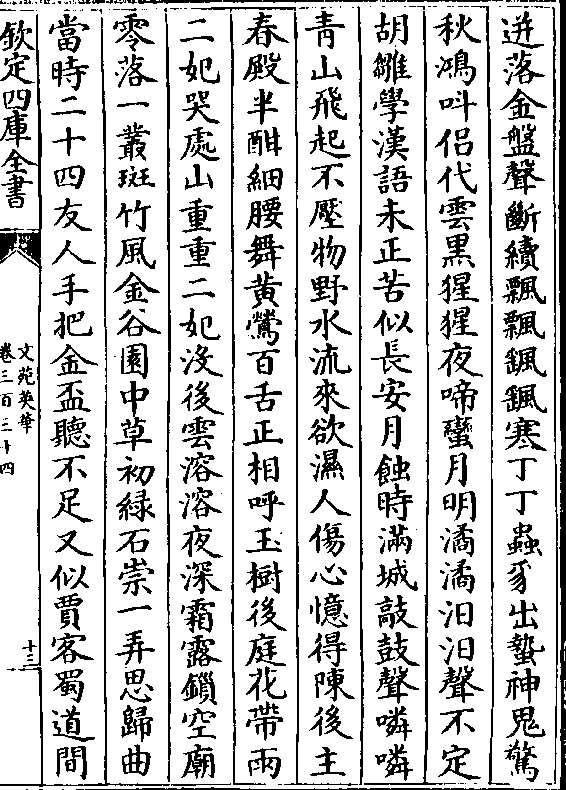 迸落金盤聲斷續飄飄颯颯寒丁丁蟲豸出蟄神鬼驚
秋鴻呌侣代雲黒猩猩夜啼蠻月明潏潏汨汨聲不定
胡雛學漢語未正苦似長安月蝕時滿城敲鼓聲噒噒
青山飛起不壓物野水流來欲濕人傷心憶得陳後主
春殿半酣細腰舞黄鶯百舌正相呼玉樹後庭花帶雨
二妃哭處山重重二妃沒後雲溶溶夜深霜露鎖空廟
零落一叢斑竹風金谷園中草初緑石崇一弄思歸曲
當時二十四友人手把金盃聽不足又似賈客蜀道間
欽定四庫全書
文苑英華
卷三百三十四
十三